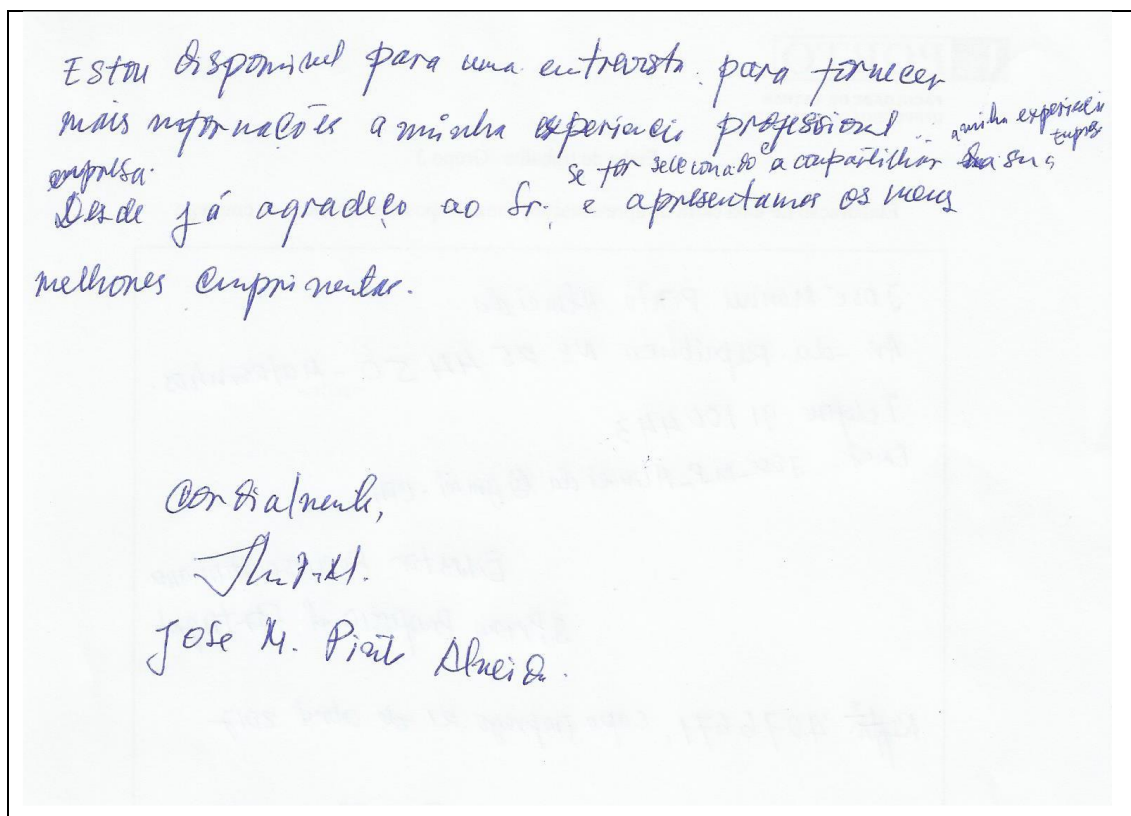 Estou disponivel para uma entrevista. para fornecer
mais informações a minha experiencia profissional. a minha experiencia
empresa. se for selecionado e a compartilhar sua
Desde já agradeço ao Sr. e apresentamos os meus
melhores cumprimentos.
Cordialmente,
Jose M. Almeida.